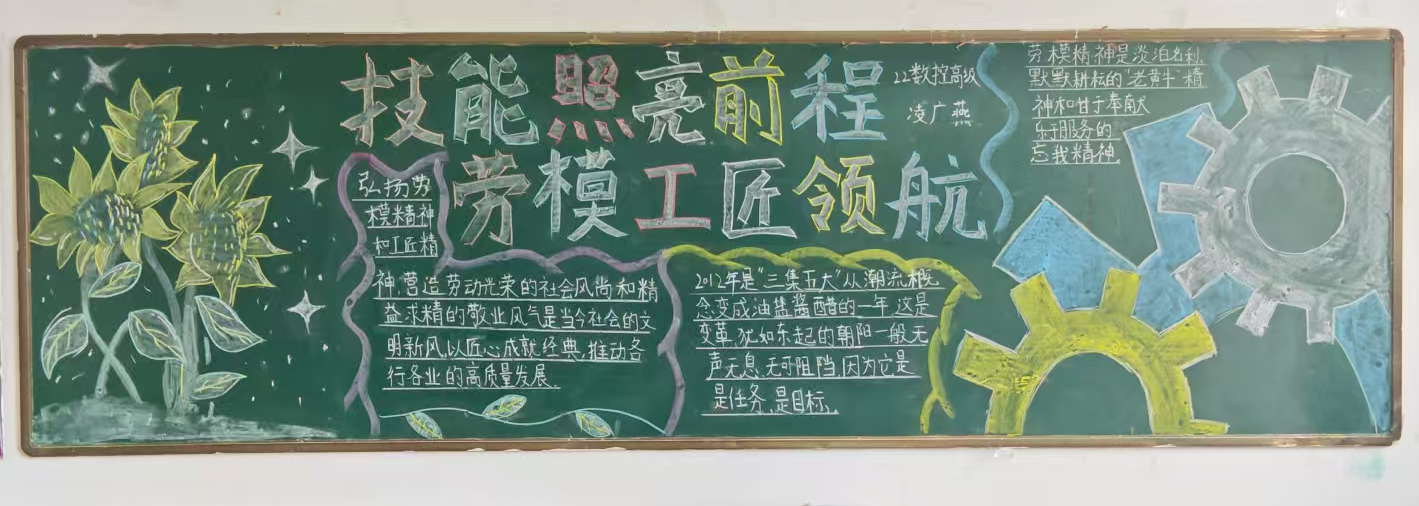 技能照亮前程
22数控高级
凌广燕
劳模工匠领航
弘扬劳
模精神
和工匠精
神营造劳动光荣的社会风尚和精
益求精的敬业风气是当今社会的文
明新风,以匠心成就经典,推动各
行各业的高质量发展.
2012年是“三集五大”从潮流概
念变成油盐酱醋的一年这是
变革,犹如东起的朝阳一般无
声无息,无可阻挡因为它是
是任务,是目标,
劳模精神是淡泊名利,
默默耕耘的“老黄牛”精
神和甘于奉献
乐于服务的
忘我精神.